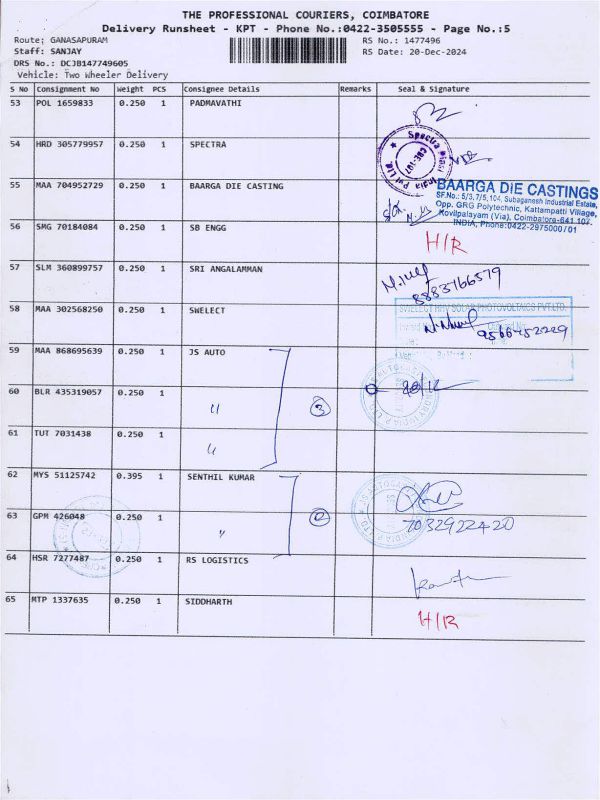 THE PROFESSIONAL COURIERS, COIMBATORE
Delivery Runsheet - KPT - Phone No.:0422-3505555 - Page No.:5
Route: GANASAPURAM RS No.: 1477496
Staff: SANJAY RS Date: 20-Dec-2024
DRS No.: DCJB147749605
Vehicle: Two Wheeler Delivery
S No Consignment No Weight PCS Consignee Details Remarks Seal & Signature
53 POL 1659833 0.250 1 PADMAVATHI
54 HRD 305779957 0.250 1 SPECTRA
55 MAA 704952729 0.250 1 BAARGA DIE CASTING
BAARGA DIE CASTINGS
SF.No.: 5/3,7/5,104, Subaganesh Industrial Estate,
Opp. GRG Polytechnic, Kattampatti Village,
Kovilpalayam (Via), Coimbatore-641 107.
INDIA, Phone:0422-2975000/01
56 SMG 70184084 0.250 1 SB ENGG H/R
57 SLM 360899757 0.250 1 SRI ANGALAMMAN
8883766579
58 MAA 302568250 0.250 1 SWELECT
9566452229
59 MAA 868695639 0.250 1 JS AUTO
60 BLR 435319057 0.250 1 " 3 20/12
61 TUT 7031438 0.250 1 "
62 MYS 51125742 0.395 1 SENTHIL KUMAR
63 GPM 426048 0.250 1 " 2 7032922420
64 HSR 7277487 0.250 1 RS LOGISTICS
65 MTP 1337635 0.250 1 SIDDHARTH H/R